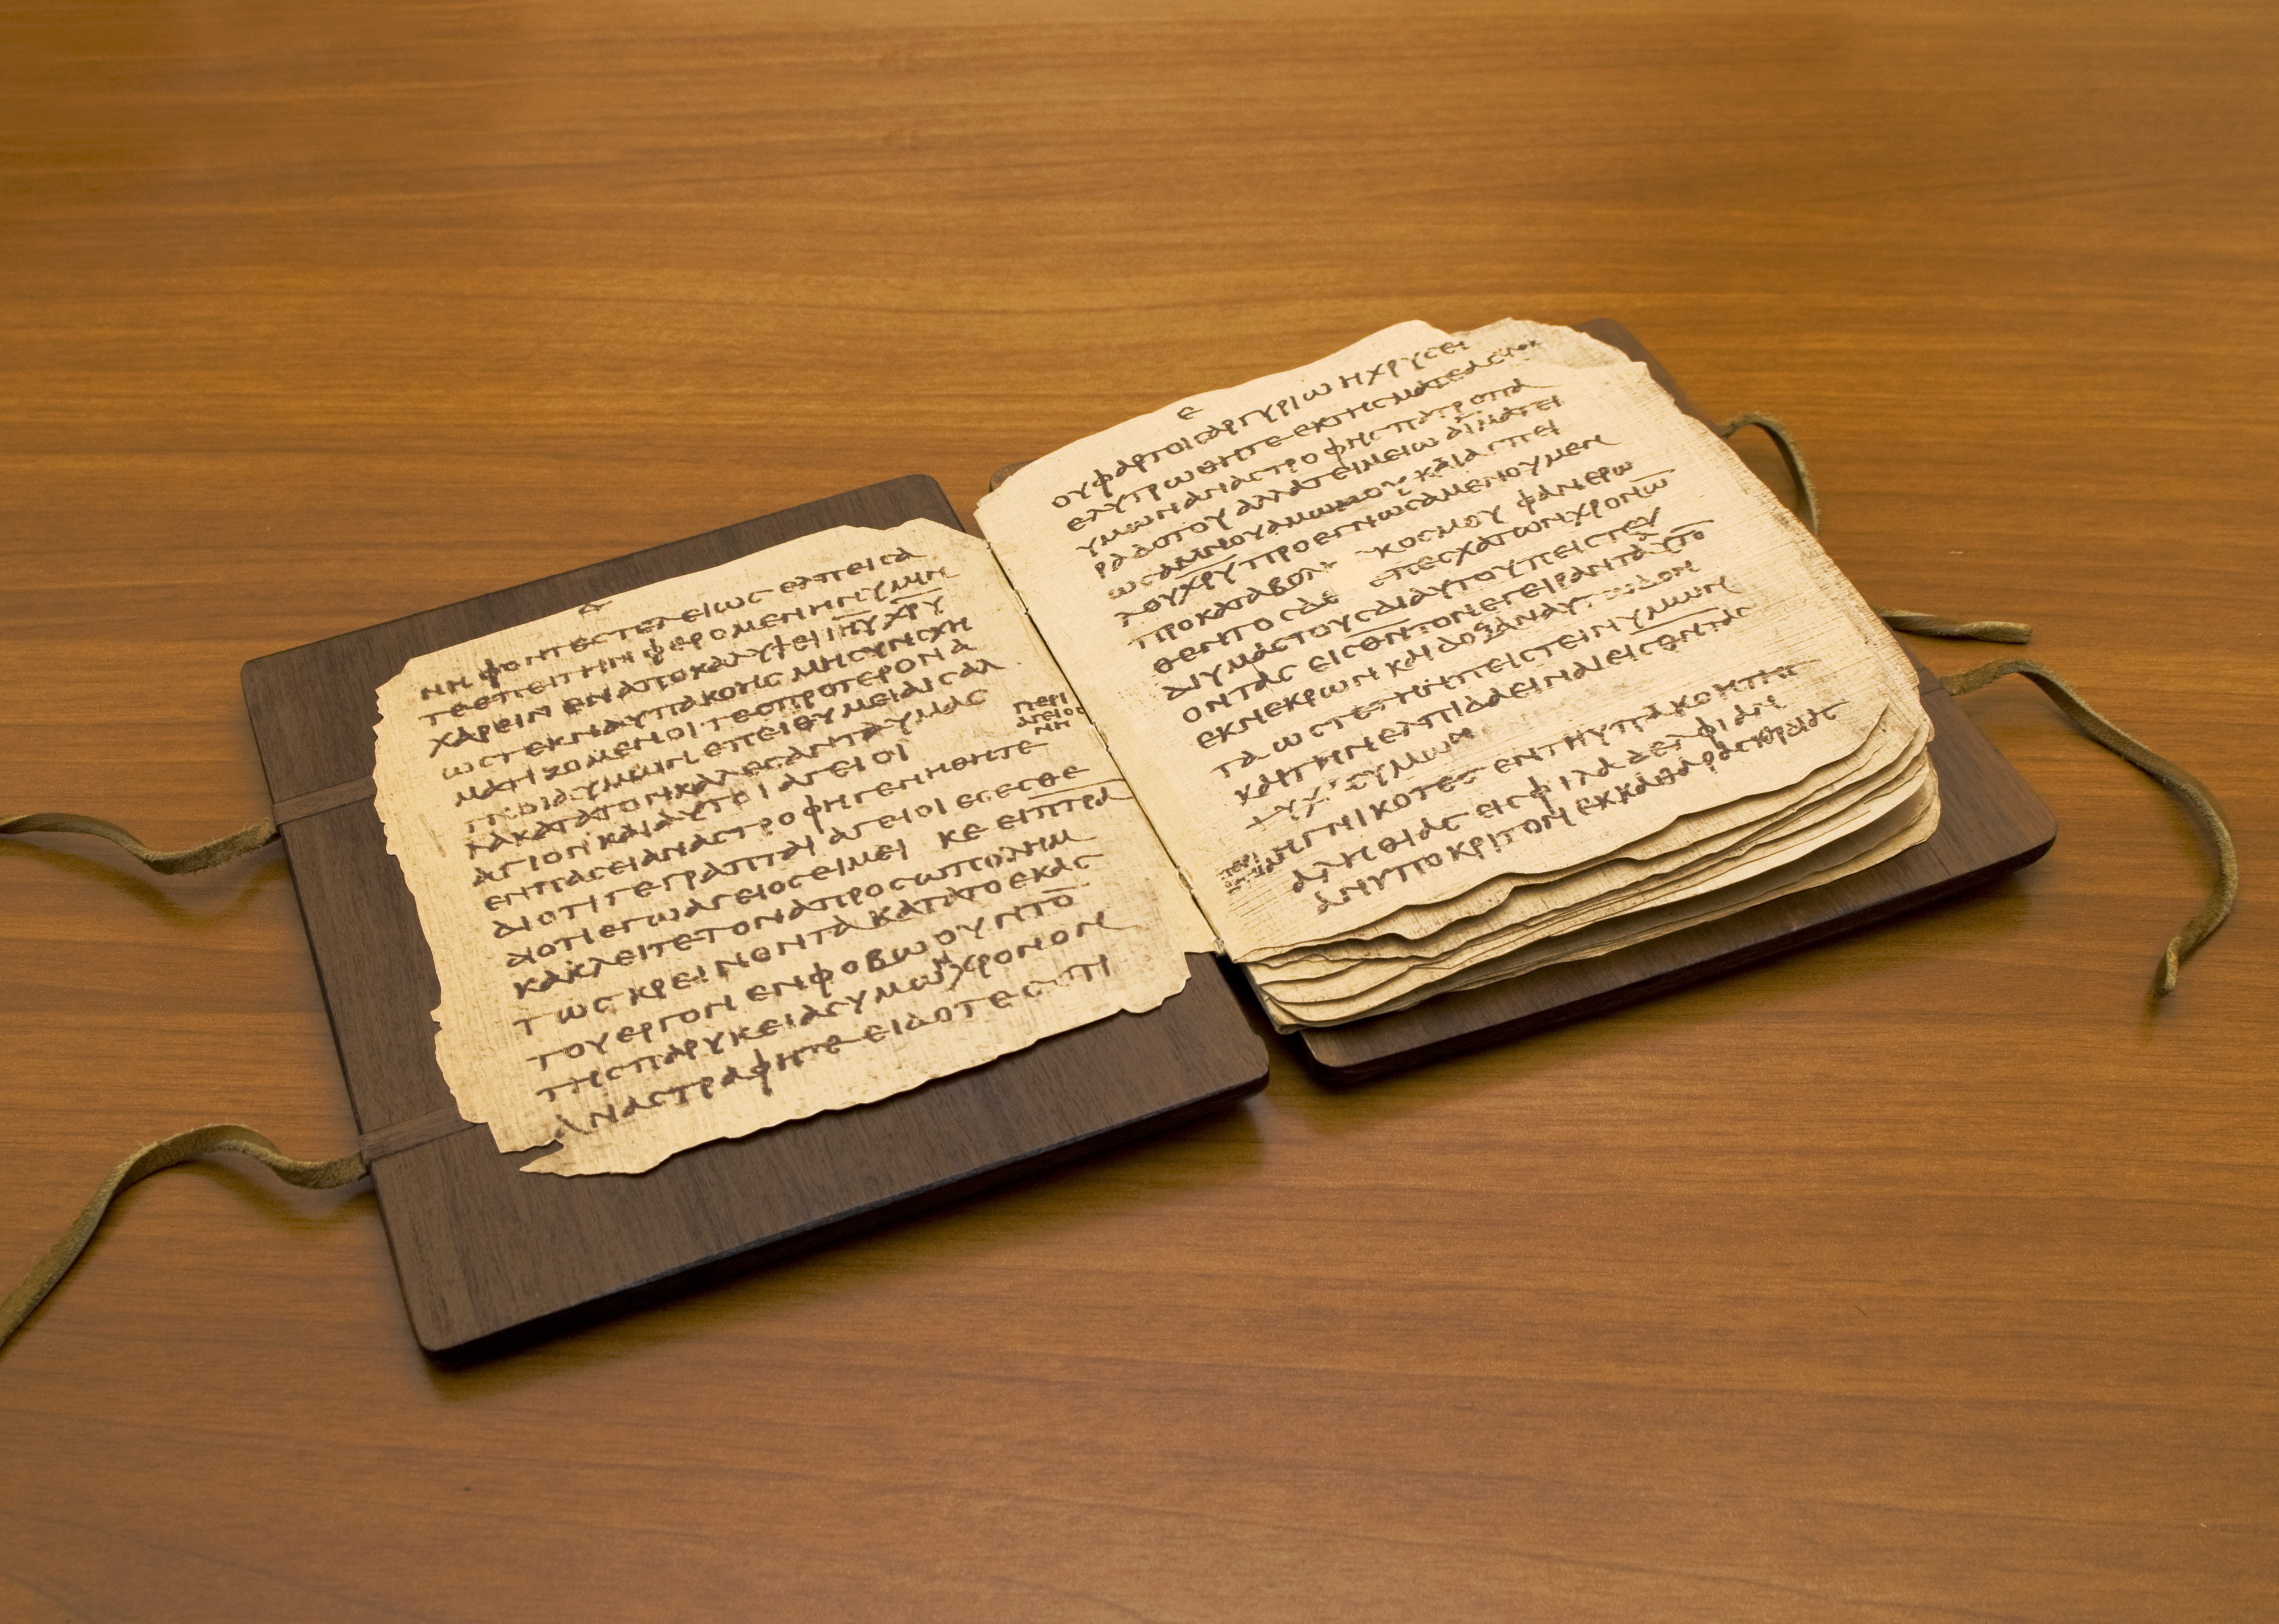 Δ
ΝΗΦΟΝΤΕϹΤΕΛΕΙΩϹ ΕΛΠΕΙϹΑ
ΤΕΕΠΕΙΤΗΝ ΦΕΡΟΜΕΝΗΝΥΜΙΝ
ΧΑΡΕΙΝ ΕΝΑΠΟΚΑΛΥΨΕΙ Ι̅Η̅Υ̅ Χ̅Ρ̅Υ̅
ΩϹΤΕΚΝΑΥΠΑΚΟΗϹ ΜΗϹΥΝϹΧΗ
ΜΑΤΙΖΟΜΕΝΟΙ·ΤΕϹΠΡΟΤΕΡΟΝ Α
ΥΜΩΝ ΕΠΕΙΘΥΜΕΙΑΙϹ ΑΛ
ΛΑΚΑΤΑΤΟΝΚΑΛΕϹΑΝΤΑΥΜΑϹ
ΑΓΙΟΝ ΚΑΙΑΥΤΟΙ ΑΓΕΙΟΙ
ΠΕΡΙ
ΑΓΕΙΟϹ
ΝΗ
ΕΝΠΑϹΕΙΑΝΑϹΤΡΟΦΗΓΕΝΗΘΗΤΕ
ΔΙΟΤΙ ΓΕΓΡΑΠΤΑΙ ΑΓΕΙΟΙ ΕϹΕϹΘΕ
ΔΙΟΤΙΕΓΩΑΓΕΙΟϹΕΙΜΕΙ ΚΕ ΕΙΠ̅Τ̅Ρ̅Α̅
ΚΑΛΕΙΤΕΤΟΝΑΠΡΟϹΩΠΟΛΗΜ
ΤΩϹ ΚΡΕΙΝΟΝΤΑ ΚΑΤΑΤΟ ΕΚΑϹ
ΤΟΥΕΡΓΟΝ ΕΝΦΟΒΩ ΟΥΝΤΟ̅
ΤΗϹΠΑΡΥΚΕΙΑϹΥΜΩΝΧΡΟΝΟΝ
ΑΝΑϹΤΡΑΦΗΤΕ ΕΙΔΟΤΕϹ ΟΤΙ
Ε
ΟΥΦΑΡΤΟΙϹΑΡΓΥΡΙΩ ΗΧΡΥϹΕΙ
ΕΛΥΤΡΩΘΗΤΕ ΕΚΤΗϹΜΑΤΕΑϹ
ΥΜΩΝΑΝΑϹΤΡΟΦΗϹΠΑΤΡΟΠΑ
ΡΑΔΟΤΟΥ ΑΛΛΑΤΕΙΜΕΙΩ ΑΙΜΑΤΕΙ
ΩϹΑΜΝΟΥΑΜΩΜΟΥ ΚΑΙΑϹΠΕΙ
ΛΟΥΧ̅Ρ̅Υ̅ ΠΡΟΕΓΝΩϹΑΜΕΝΟΥΜΕΝ
ΠΡΟΚΑΤΑΒΟΛΗϹ ΚΟϹΜΟΥ ΦΑΝΕΡΩ
ΘΕΝΤΟϹΔΕ ΕΠΕϹΧΑΤΩΝΧΡΟΝΩ̅
ΔΙΥΜΑϹΤΟΥϹΔΙΑΥΤΟΥΠΕΙϹΤΕΥ
ΟΝΤΑϹ ΕΙϹΘ̅Ν̅ΤΟΝΕΓΕΙΡΑΝΤΑΑΥΤΟ̅
ΕΚΝΕΚΡΩΝ ΚΑΙ ΔΟΞΑΝΑΥΤΩΔΟΝ
ΤΑ ΩϹΤΕΤΗΝΠΕΙϹΤΕΙΝΥΜΩΝ
ΚΑΙΤΗΝΕΛΠΙΔΑΕΙΝΑΙΕΙϹΘ̅Ν̅ΤΑϹ
ΨΥΧΑϹΥΜΩΝ
ΗΓΝΙΚΟΤΕϹ ΕΝΤΗΥΠΑΚΟΗΤΗϹ
ΑΛΗΘΙΑϹ ΕΙϹΦΙΛΑΔΕΛΦΙΑΝ
ΑΝΥΠΟΚΡΙΤΟΝ ΕΚΚΑΘΑΡΑϹΚΡΑΙΔΙΑϹ